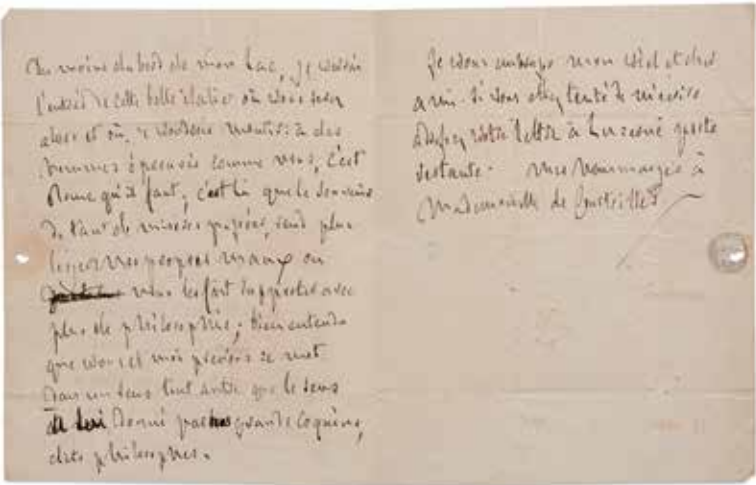 Du moins du bord de mon Lac, je verrai
l'entrée de cette belle Italie où vous serez
alors et où, je voudrais mourir: à des
hommes éprouvés comme vous, c'est
Rome qu'il faut; c'est là que le souvenir
de tant de misères passées, rend plus
légers nos propres maux ou
vous les fait supporter avec
plus de philosophie; bien entendu
que vous et moi prenons ce mot
dans un sens tout autre que le sens
à lui donné par nos grands coquins,
dits philosophes.
Je vous embrasse mon vieil et cher
ami. Si vous étiez tenté de m'écrire
adressez votre lettre à Lucerne poste
restante. Mes hommages à
Mademoiselle de